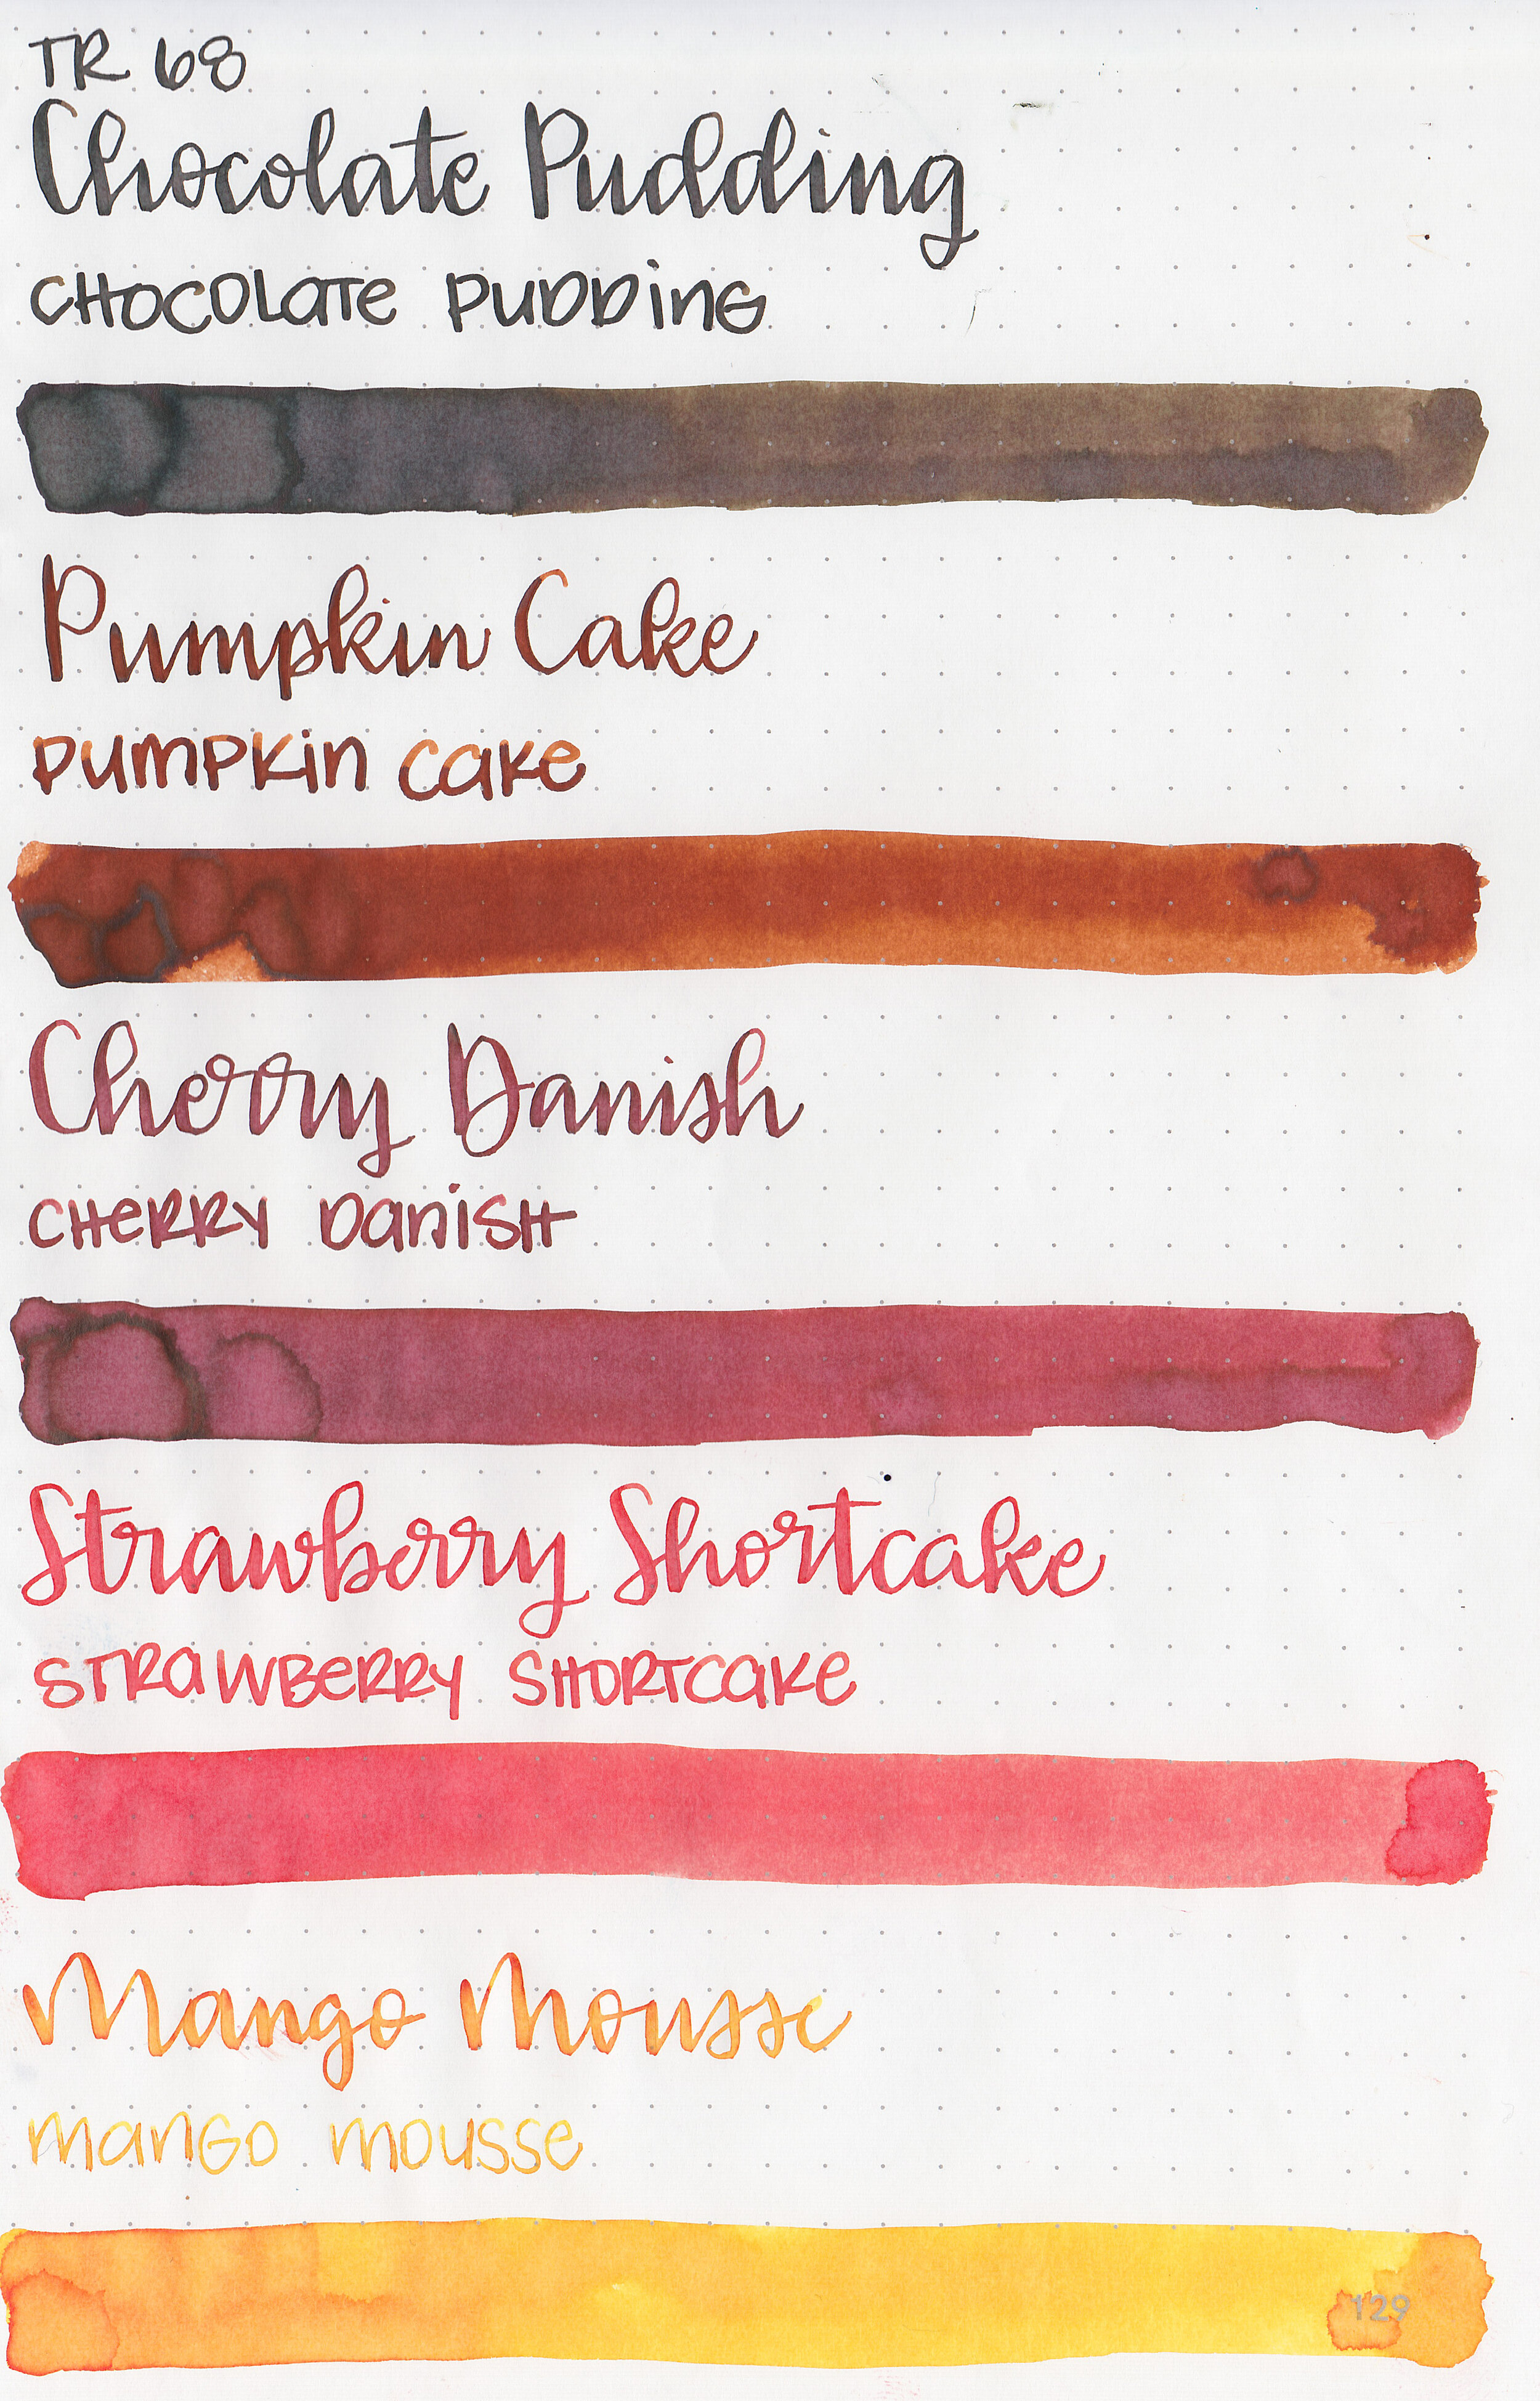 TR 68
Chocolate Pudding
CHOCOLATE PUDDING
Pumpkin Cake
PUMPKIN CAKE
Cherry Danish
CHERRY DANISH
Strawberry Shortcake
STRAWBERRY SHORTCAKE
Mango Mousse
MANGO MOUSSE
129